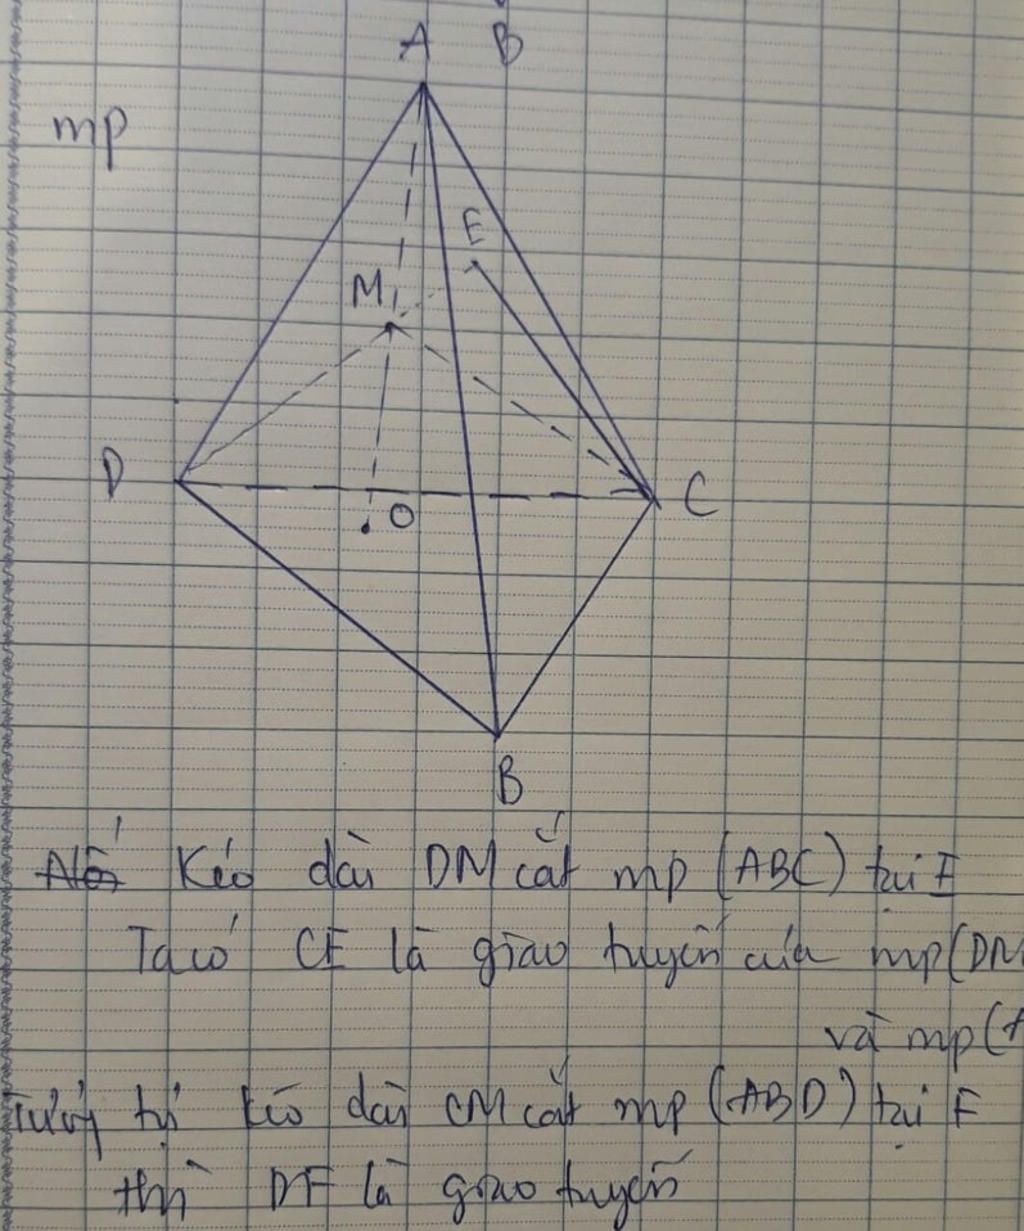 A B
mp
E
M
D
O
C
B
Kéo dài DM cắt mp (ABC) tại E
Ta có CE là giao tuyến của mp(DM
và mp(A
Tương tự kéo dài CM cắt mp (ABD) tại F
thì DF là giao tuyến